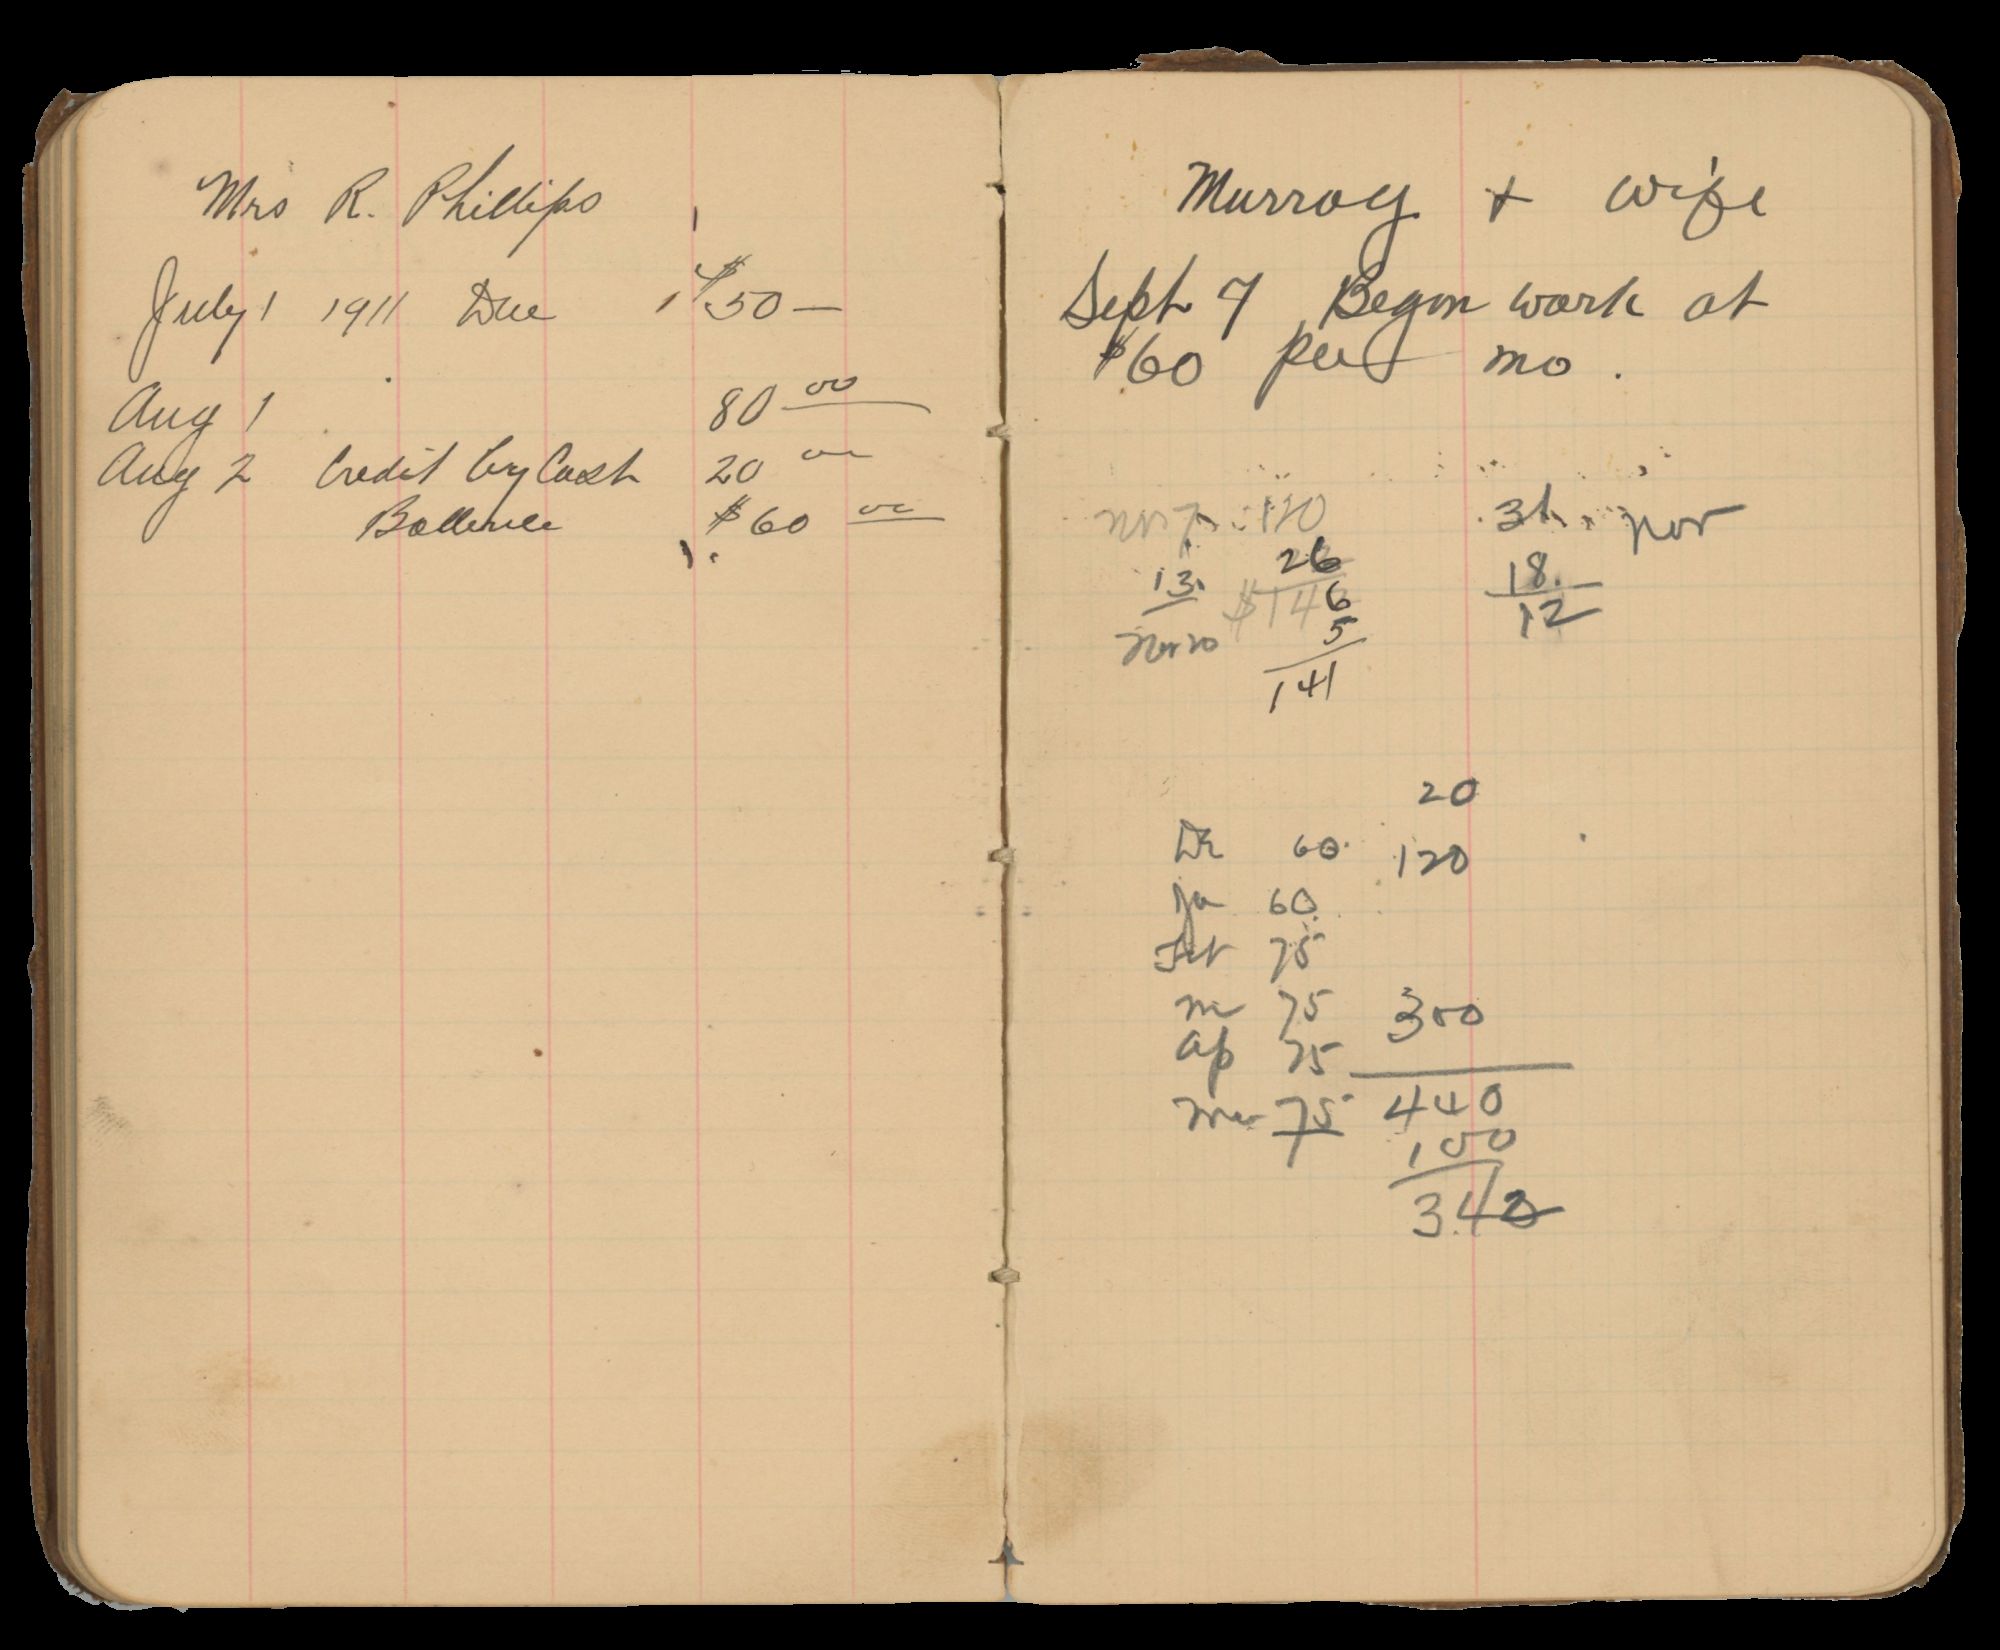 Mrs R. Phillips
July 1 1911 Due $50 —
Aug 1 80 00
Aug 2 Credit by Cash 20 00
Ballence $60 00
Murray + wife
Sept 7 Began work at
$60 per mo.
Nov 7 120 31 Nov
13 26 18
$146 12
Nov 20 5
141
20
De 60 120
Ja 60
Feb 75
m 75 300
Ap 75
Ma 75 440
100
340